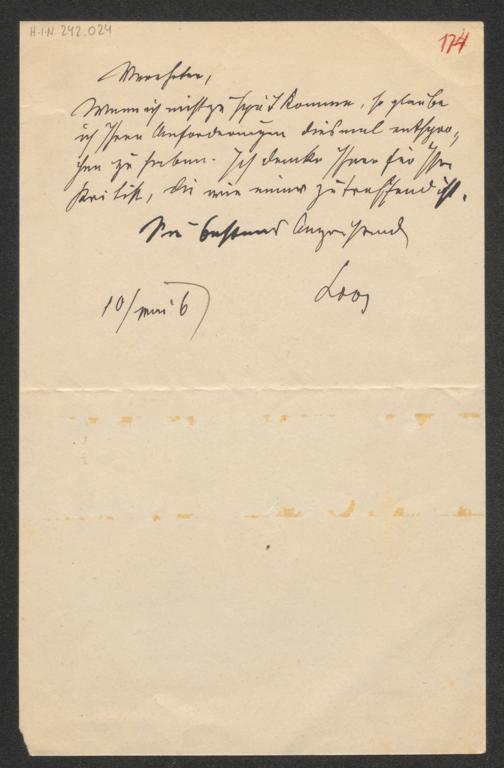 H.I.N. 242.024
174
Verehrter,
Wenn ich nicht zu spät komme, so glaube
ich Ihren Anforderungen diesmal entspro-
chen zu haben. Ich danke Ihnen für Ihre
Kritik, die wie immer zutreffend ist.
Sie bestens
Loos
10/mai 6